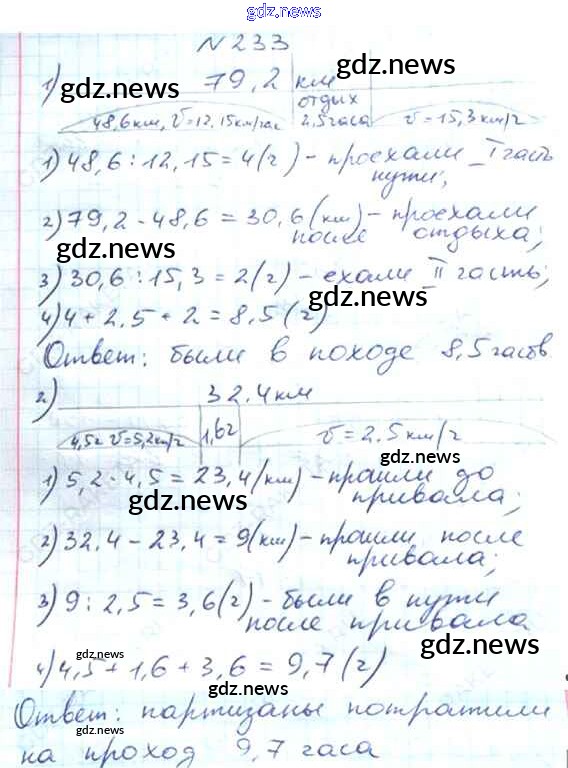 gdz.news
N 233
1) 79,2 км
gdz.news gdz.news
отдых
48,6км, V=12,15км/час 2,5 часа v=15,3км/ч
1) 48,6 : 12,15 = 4(ч) - проехали I часть
пути;
2) 79,2 - 48,6 = 30,6 (км) - проехали
после отдыха;
gdz.news
3) 30,6 : 15,3 = 2(ч) - ехали II часть;
gdz.news
4) 4 + 2,5 + 2 = 8,5 (ч)
Ответ: были в походе 8,5 часов
2) 32.4км
4,5ч V=5,2км/ч 1,6ч v=2.5км/ч
gdz.news
1) 5,2 · 4,5 = 23,4 (км) - прошли до
привала;
gdz.news
2) 32,4 - 23,4 = 9(км) - прошли после
привала;
3) 9 : 2,5 = 3,6(ч) - были в пути
после привала
gdz.news gdz.news
4) 4,5 + 1,6 + 3,6 = 9,7 (ч)
gdz.news
Ответ: партизаны потратили
на проход 9,7 часа
gdz.news